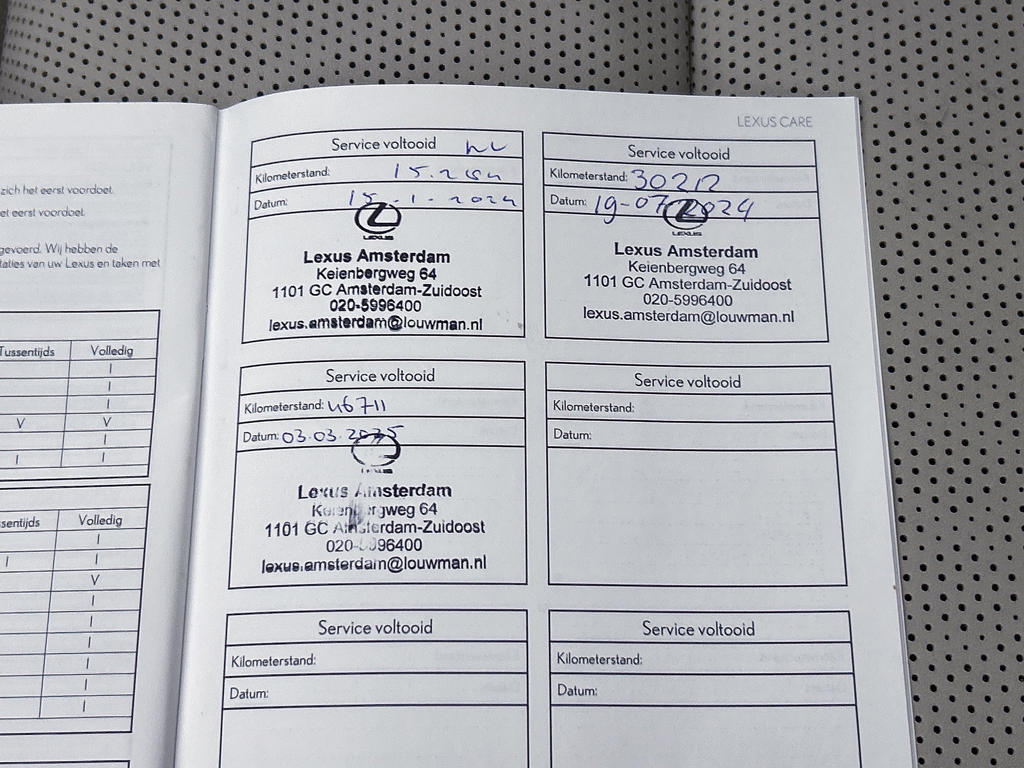 zich het eerst voordoet.
et eerst voordoel.
gevoerd. Wij hebben de
taties van uw Lexus en taken met
Tussentijds Volledig
I
I
I
V V
I
I I
Volledig
I
I I
V
I
I
I
I
I
I
LEXUS CARE
Service voltooid
Kilometerstand:
Datum: 15-1-2024
LEXUS
Lexus Amsterdam
Keienbergweg 64
1101 GC Amsterdam-Zuidoost
020-5996400
lexus.amsterdam@louwman.nl
Service voltooid
Kilometerstand: 30212
Datum: 19-07-2024
LEXUS
Lexus Amsterdam
Keienbergweg 64
1101 GC Amsterdam-Zuidoost
020-5996400
lexus.amsterdam@louwman.nl
Service voltooid
Kilometerstand: 46711
Datum: 03.03.2025
Lexus Amsterdam
Keienbergweg 64
1101 GC Amsterdam-Zuidoost
020-5996400
lexus.amsterdam@louwman.nl
Service voltooid
Kilometerstand:
Datum:
Service voltooid
Kilometerstand:
Datum:
Service voltooid
Kilometerstand:
Datum: